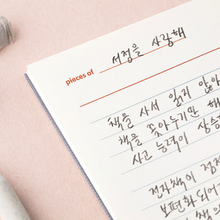 서점을 사랑해
pieces of
책을 사서 읽지 않
책을 꽂아두기만 해
사고 능력이 상승
전자책이 점
보편화되어